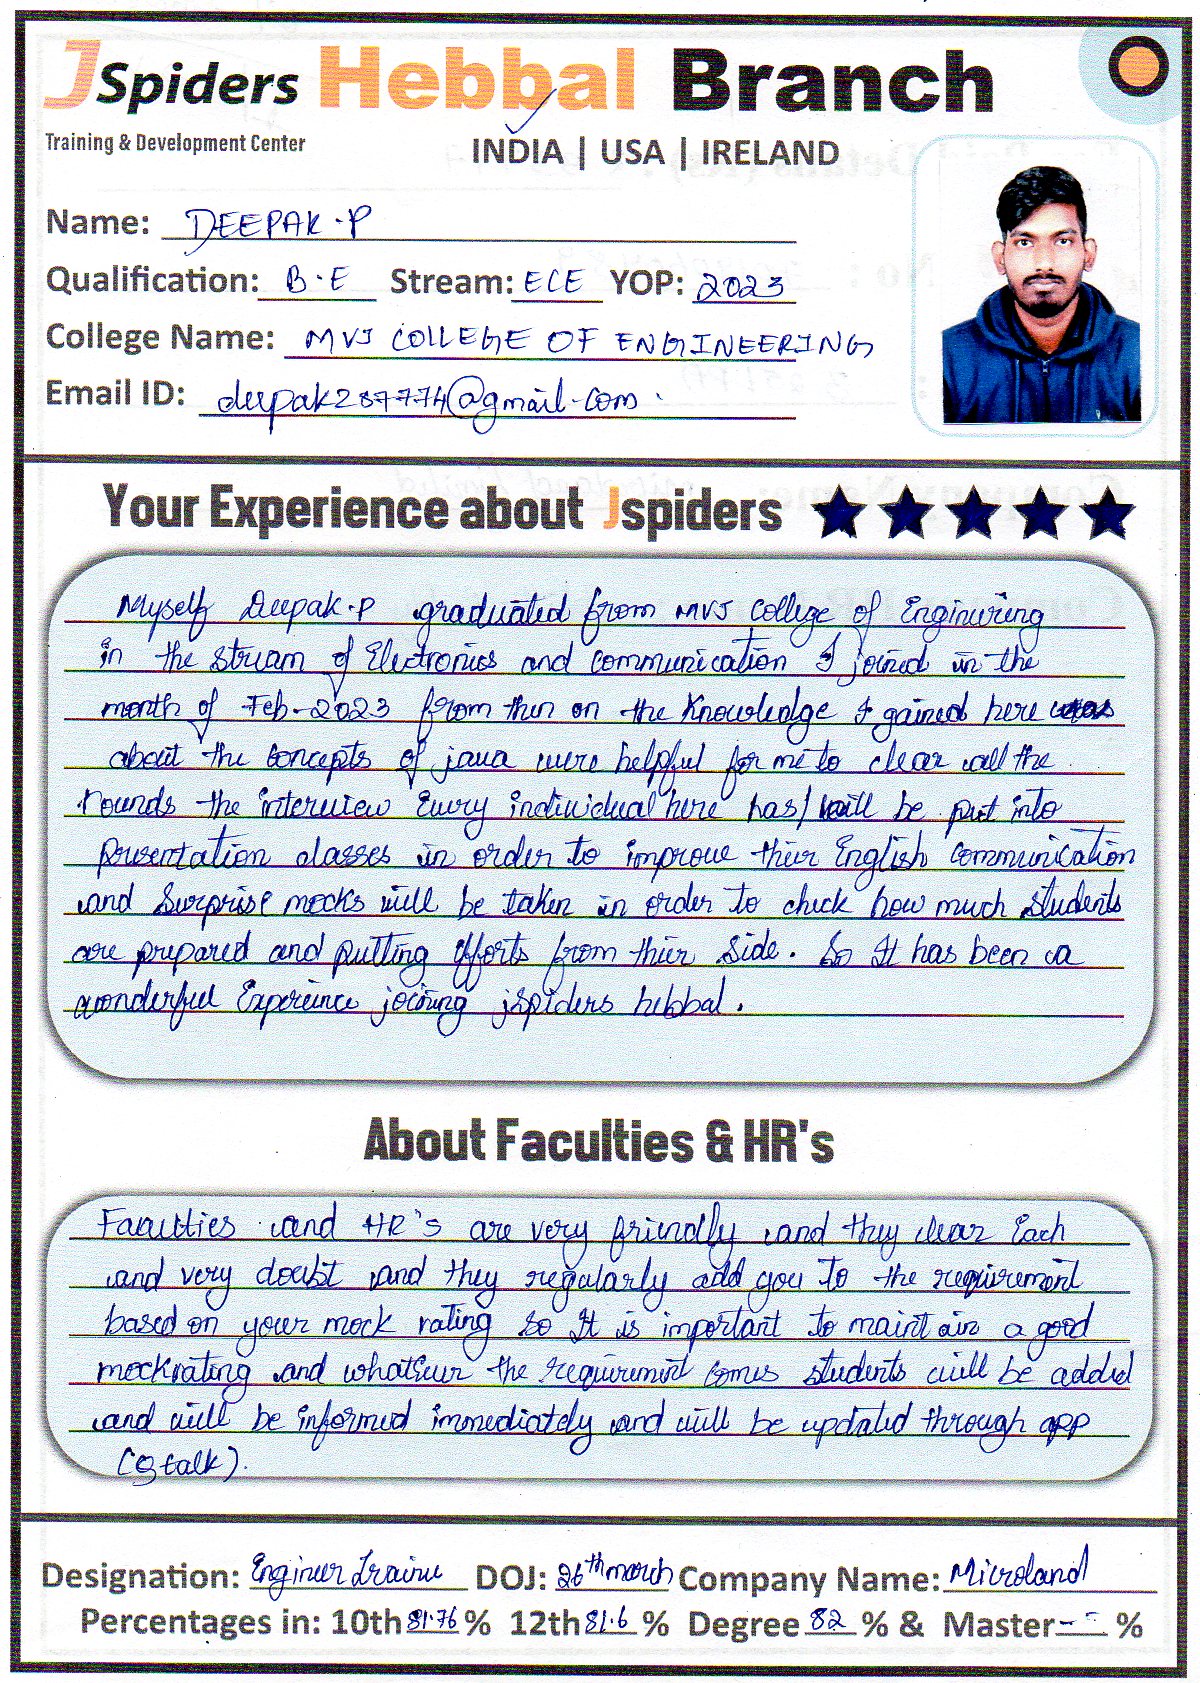 JSpiders Hebbal Branch
Training & Development Center
INDIA | USA | IRELAND
Name: DEEPAK.P
Qualification: B.E Stream: ECE YOP: 2023
College Name: MVJ COLLEGE OF ENGINEERING
Email ID: deepak287774@gmail.com.
Your Experience about Jspiders
Myself Deepak.P graduated from MVJ College of Enginering
in the stream of Electronics and communication I joined in the
month of Feb-2023 from then on the knowledge I gained here was
about the concepts of java were helpful for me to clear all the
rounds the interview Every individual here has/will be put into
presentation classes in order to improve thier English communication
and Surprise mocks will be taken in order to check how much students
are prepared and putting efforts from thier side. So It has been a
wonderful Experience joining jspiders hebbal.
About Faculties & HR's
Faculties and HR's are very friendly and they clear Each
and very doubt and they regularly add you to the requirement
based on your mock rating so It is important to maintain a good
mockrating and whatever the requirement comes students will be added
and will be informed immediately and will be updated through app
(Qtalk).
Designation: Engineer Trainee DOJ: 26th march Company Name: Microland
Percentages in: 10th 81.76 % 12th 81.6 % Degree 82 % & Master -- %